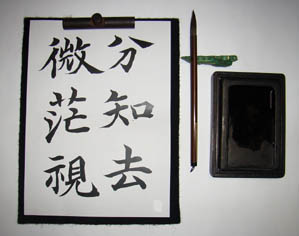 分知去
微茫視